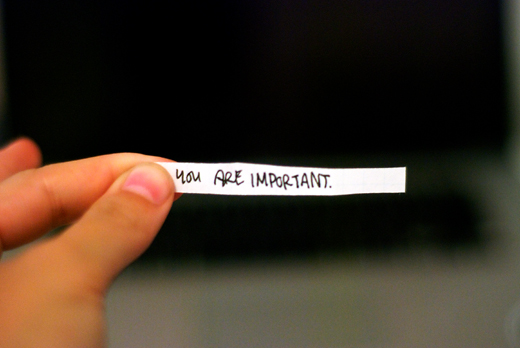 YOU ARE IMPORTANT.